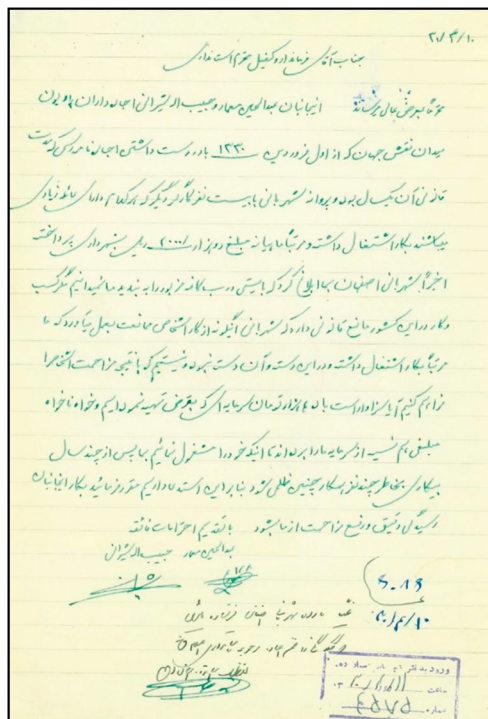 ۳۰/۴/۱۰
جناب آقای فرماندار و کفیل محترم استانداری
محترما بعرض عالی میرساند اینجانبان عبدالحسین معمار و حبیب اله شیرانی اجاره داران
میدان نقش جهان که از اول فروردین ۱۳۳۰ با در دست داشتن اجاره نامه رسمی که مدت
قانونی آن یکسال بود و پروانه شهربانی با بیست نفر کارگر دیگر که هر کدام دارای عائله زیادی
میباشند بکار اشتغال داشته و مرتباً ماهیانه مبلغ دو هزار ۲۰۰۰ ریال بشهرداری پرداخته
اخیراً شهربانی اصفهان بما ابلاغ کرد که بایستی درب کافه مزبور را به بندید ما نمیدانیم مگر کسب
و کار در این کشور مانع قانونی دارد که شهربانی اینگونه از کار اشخاص ممانعت بعمل میآورد که ما
مرتباً بکار اشتغال داشته و در این دسته و آن دسته نبوده و نیستیم که بالنتیجه مزاحمت اشخاص را
فراهم کنیم آیا سزاوار است با پانزده هزار تومان سرمایه ای که بقرض تهیه نموده ایم و خواه ناخواه
مبلغی هم نسیه از سرمایه ما را برده اند تا اینکه خود را مشغول نمائیم پس از چند سال
بیکاری بخاطر چند نفر بیکار چنین ظلمی شود بنابراین استدعا داریم مقرر فرمائید بکار اینجانبان
رسیدگی دقیق و رفع مزاحمت از ما بشود با تقدیم احترامات فائقه
عبدالحسین معمار حبیب اله شیرانی
۶۰۸۹
۳۰/۴/۱۰
ورود به دفتر
ساعت
شماره